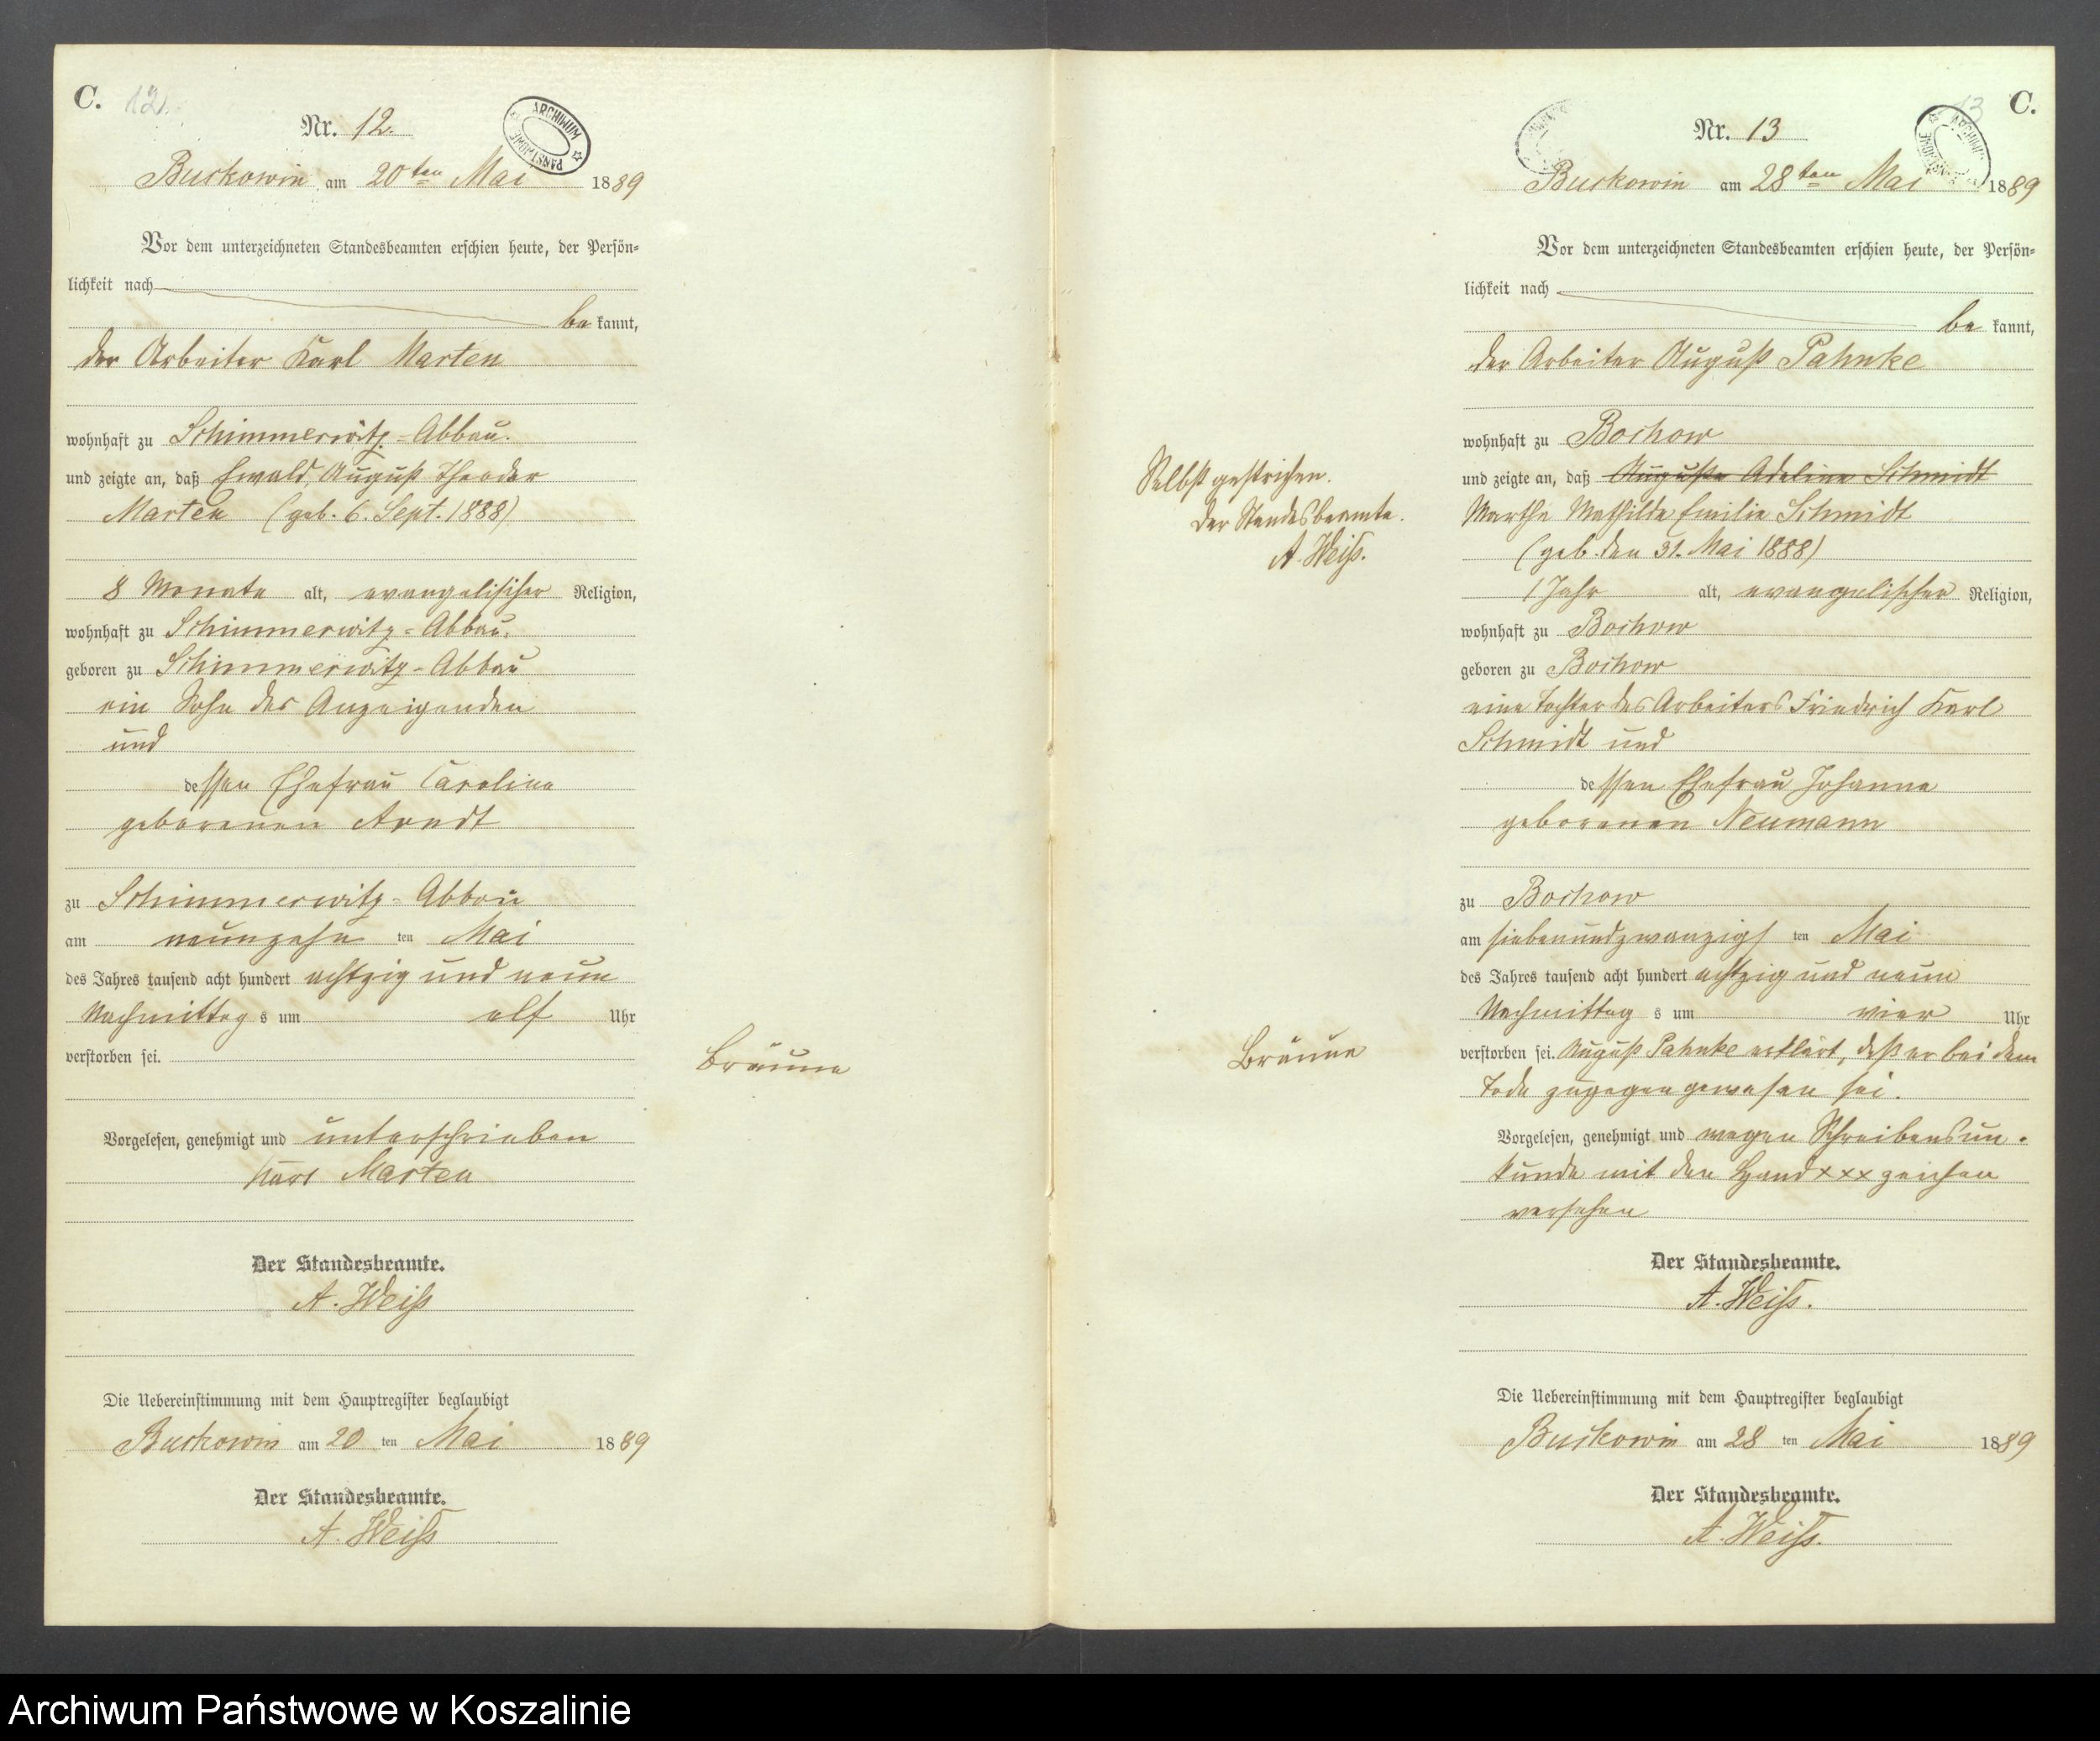 C. 12.
ARCHIWUM PAŃSTWOWE
Nr. 12.
Buckowin am 20ten Mai 1889
Vor dem unterzeichneten Standesbeamten erschien heute, der Persön-
lichkeit nach
be kannt,
der Arbeiter Karl Marten
wohnhaft zu Schimmerwitz-Abbau.
und zeigte an, daß Ewald, August Theodor
Marten (geb. 6. Sept. 1888)
8 Monate alt, evangelischer Religion,
wohnhaft zu Schimmerwitz-Abbau.
geboren zu Schimmerwitz-Abbau
ein Sohn des Anzeigenden
und
dessen Ehefrau Caroline
geborenen Arndt
zu Schimmerwitz-Abbau
am neunzehn ten Mai
des Jahres tausend acht hundert achtzig und neun
Nachmittag s um elf Uhr
verstorben sei.
Bräune
Vorgelesen, genehmigt und unterschrieben
Karl Marten
Der Standesbeamte.
A. Weiß
Die Uebereinstimmung mit dem Hauptregister beglaubigt
Buckowin am 20 ten Mai 1889
Der Standesbeamte.
A. Weiß
13 C.
Nr. 13
Buckowin am 28ten Mai 1889
Vor dem unterzeichneten Standesbeamten erschien heute, der Persön-
lichkeit nach
be kannt,
der Arbeiter August Pahnke
wohnhaft zu Bochow
und zeigte an, daß Auguste Adeline Schmidt
Marthe Mathilde Emilie Schmidt
(geb. den 31. Mai 1888)
Selbst gestrichen.
Der Standesbeamte.
A. Weiß.
1 Jahr alt, evangelischer Religion,
wohnhaft zu Bochow
geboren zu Bochow
eine Tochter des Arbeiters Friedrich Karl
Schmidt und
dessen Ehefrau Johanne
geborenen Neumann
zu Bochow
am siebenundzwanzigs ten Mai
des Jahres tausend acht hundert achtzig und neun
Nachmittag s um vier Uhr
verstorben sei. August Pahnke erklärt, daß er bei dem
Tode zugegen gewesen sei.
Bräune
Vorgelesen, genehmigt und wegen Schreibensun-
kunde mit den Hand xxx zeichen
versehen
Der Standesbeamte.
A. Weiß.
Die Uebereinstimmung mit dem Hauptregister beglaubigt
Buckowin am 28 ten Mai 1889
Der Standesbeamte.
A. Weiß.
Archiwum Państwowe w Koszalinie